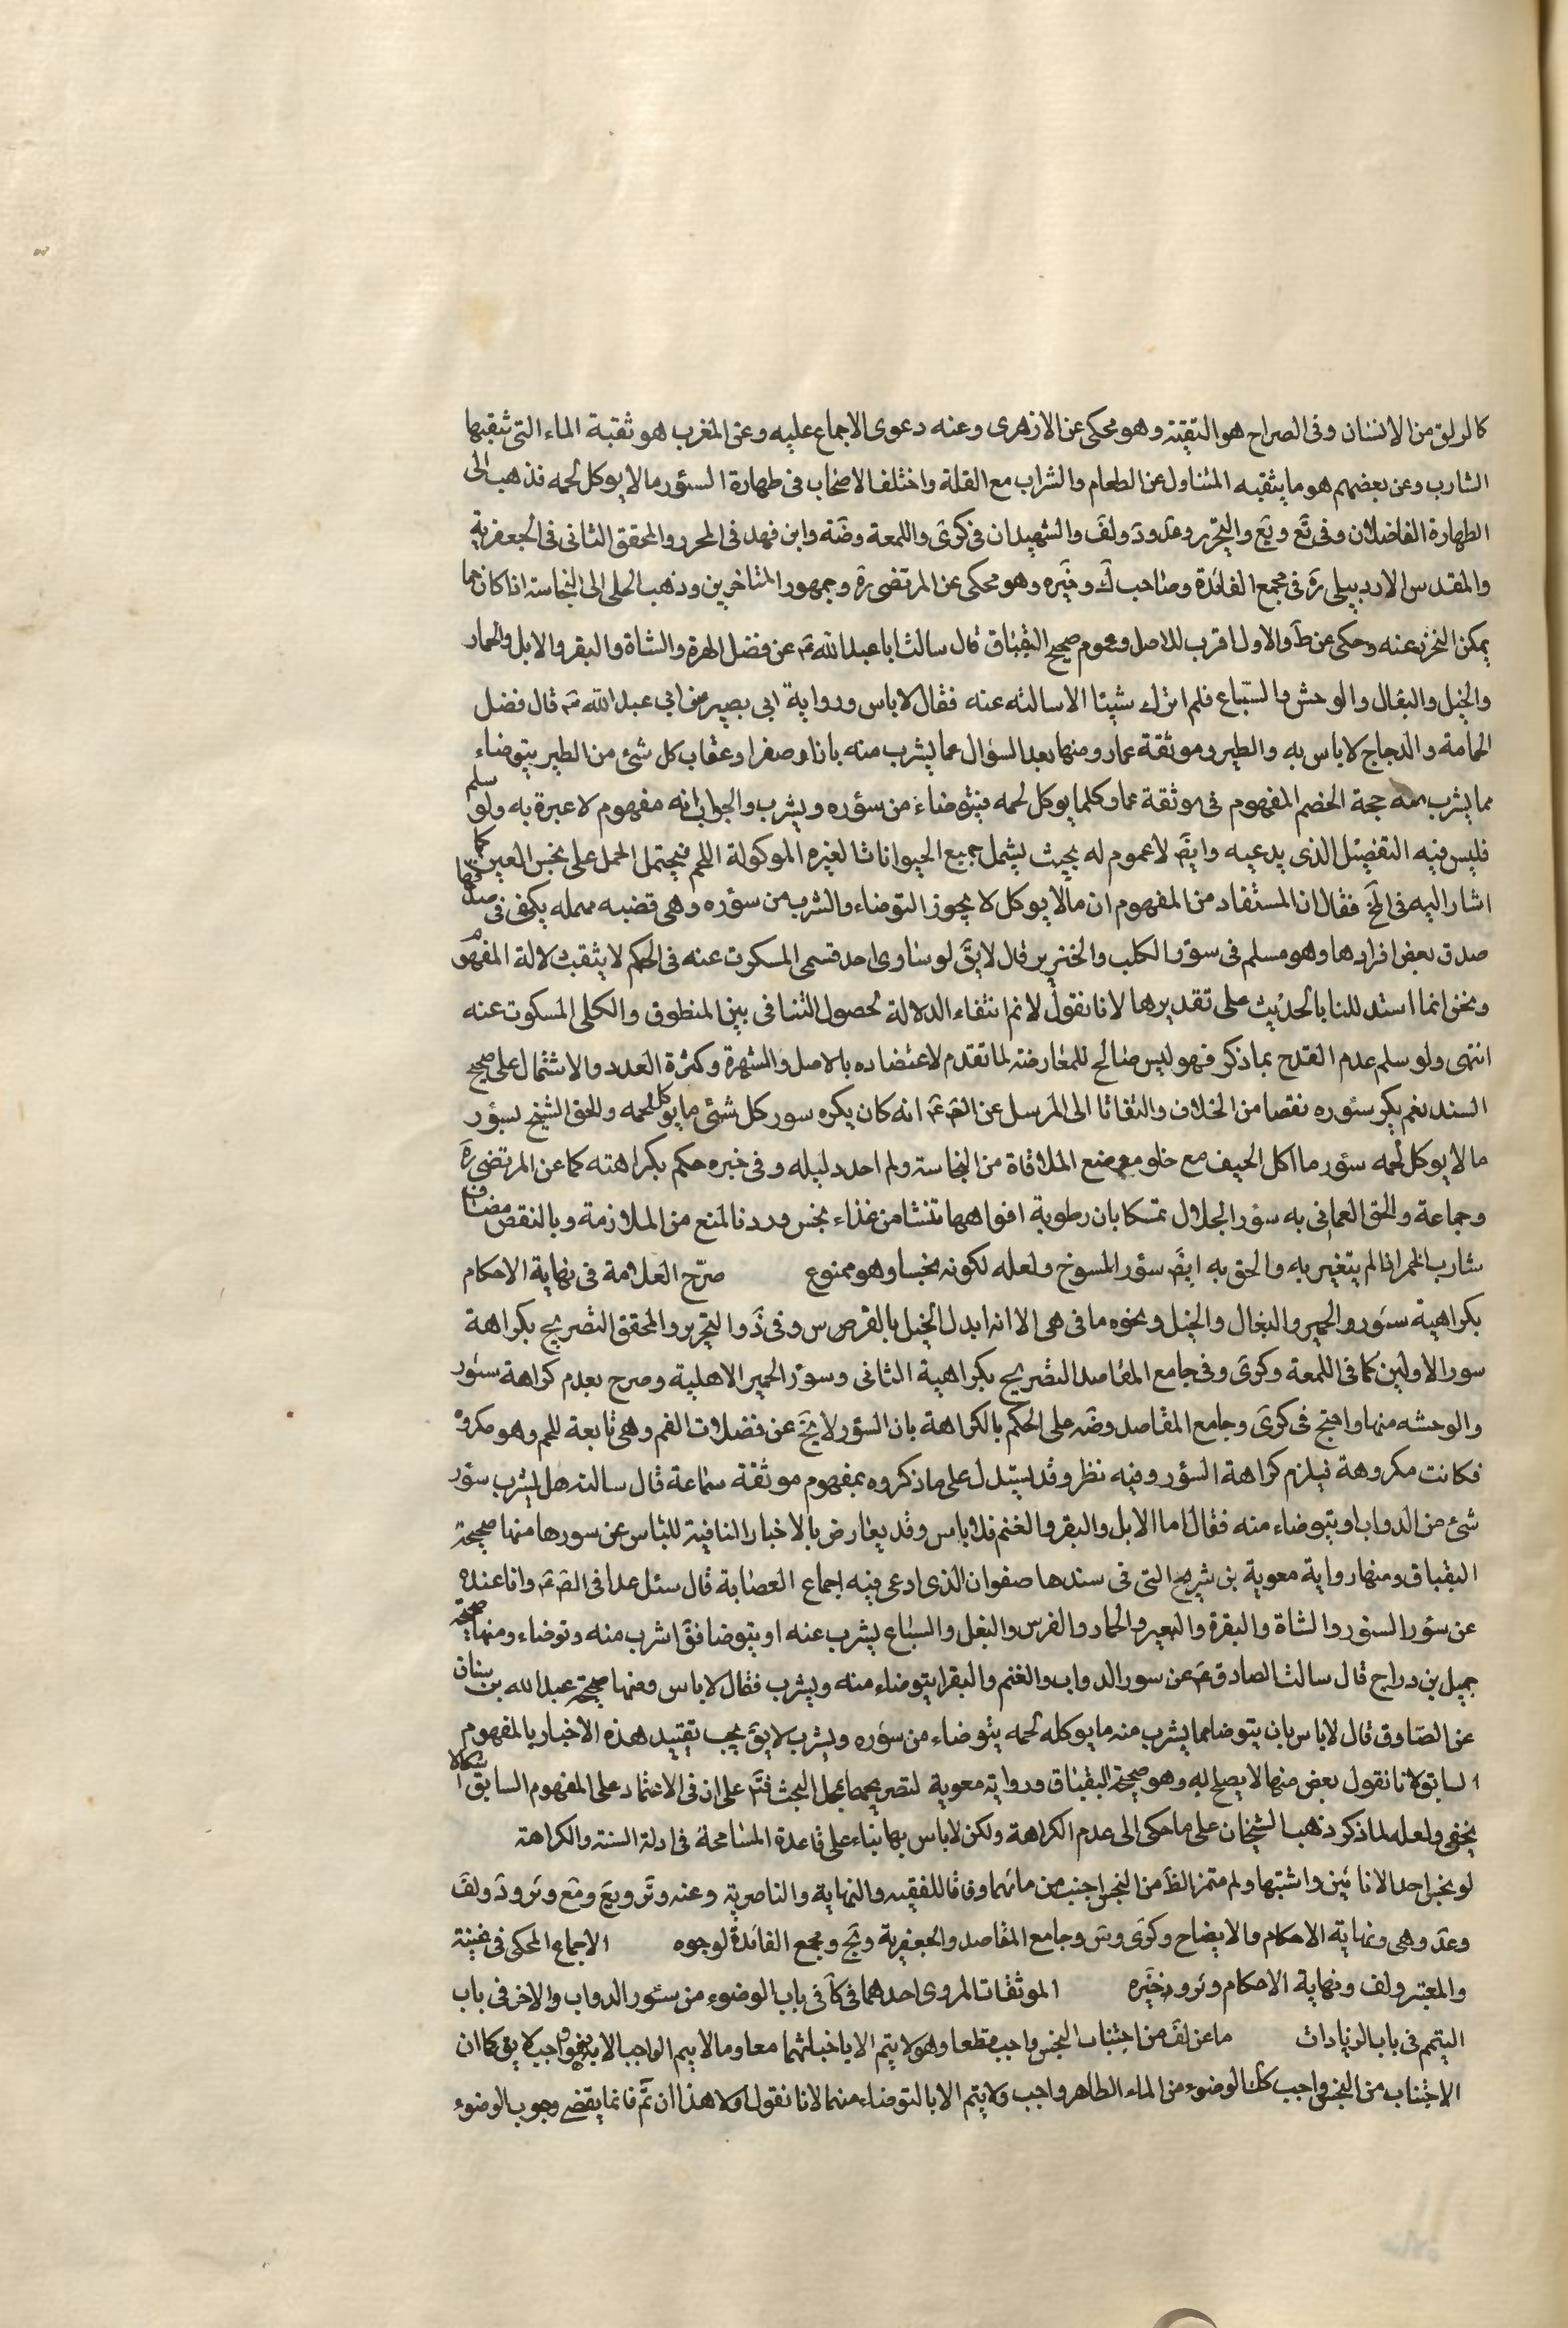 كالريق من الانسان وفى الصراح هو البقيّة وهو محكى عن الازهرى وعنه دعوى الاجماع عليه وعن المغرب هو بقية الماء التى يبقيها
الشارب وعن بعضهم هو ما يبقيه المتناول عن الطعام والشراب مع القلة واختلف الاصحاب فى طهارة السؤر ما لا يوكل لحمه فذهب الى
الطهارة الفاضلان وفى تع ويع والتحرير وعد ود ولف والشهيدان فى كرى واللمعة وضه وابن فهد فى المحرر والمحقق الثانى فى الجعفرية
والمقدس الاردبيلى ره فى مجمع الفائدة وصاحب ك وخيره وهو محكى عن المرتضى ره وجمهور المتاخرين وذهب الحلى الى النجاسة اذا كان مما
يمكن التحرز عنه وحكى عن ط والاول اقرب للاصل وعموم صحيح البقباق قال سالت ابا عبد الله ع عن فضل الهرة والشاة والبقر والابل والحمار
والخيل والبغال والوحش والسباع فلم اترك شيئا الا سالته عنه فقال لا باس ورواية ابى بصير عن ابى عبد الله ع قال فضل
الحمامة والدجاج لا باس به والطير وموثقة عمار ومنها بعد السؤال عما يشرب منه باز او صقر او عقاب كل شئ من الطير يتوضاء
مما يشرب منه حجة الخصم المفهوم فى موثقة عمار كلما يوكل لحمه فيتوضاء من سؤره ويشرب والجواب انه مفهوم لا عبرة به ولو سلم
فليس فيه التفصيل الذى يدعيه وايض لا عموم له بحيث يشمل جميع الحيوانات الغيره الموكولة اللحم فيحتمل الحمل على نجس العين كما
اشار اليه فى لخ فقال ان المستفاد من المفهوم ان ما لا يوكل لا يجوز التوضاء والشرب من سؤره وهى قضيه مهمله يكفى فى صدقها
صدق بعض افرادها وهو مسلم فى سؤر الكلب والخنزير قال لا يق لو ساوى احد قسمى المسكوت عنه فى الحكم لانتفت دلالة المفهوم
ونحن انما استدللنا بالحديث على تقديرها لانا نقول لا نم انتفاء الدلالة لحصول التنافى بين المنطوق والكلى المسكوت عنه
انتهى ولو سلم عدم القدح بما ذكر فهو ليس صالح للمعارضة لما تقدم لاعتضاده بالاصل والشهرة وكثرة العدد والاشتمال على صحيح
السند نعم يكره سؤره نقصا من الخلاف والتفاتا الى المرسل عن الص ع انه كان يكره سور كل شئ ما يوكل لحمه والحق الشيخ بسؤر
ما لا يوكل لحمه سؤر ما اكل الجيف مع خلو موضع الملاقاة من النجاسة ولم اجد دليله وفى خيره حكم بكراهته كما عن المرتضى ره
وجماعة والحق العمانى به سؤر الجلال تمسكا بان رطوبة افواهها تنشا من غذاء نجس وردنا لمنع من الملازمة وبالنقض مضافا
شارب الخمر اذا لم يتغير به والحق به ايض سؤر المسوخ ولعله لكونه نجسا وهو ممنوع صرّح العلامة فى نهاية الاحكام
بكراهية سؤر والحمير والبغال والخيل ونحوه ما فى هى الا انه ابدل الخيل بالفرس وفى ذ والتحرير والمحقق التصريح بكراهة
سور الاولين كما فى اللمعة وكرى وفى جامع المقاصد التصريح بكراهية الثانى وسؤر الحمير الاهلية وصرح بعدم كراهة سئور
والوحشه منها واحتج فى كرى وجامع المقاصد وضه على الحكم بالكراهة بان السؤر لا يخ عن فضلات الفم وهى تابعة للحم وهو مكروه
فكانت مكروهة فيلزم كراهة السؤر وفيه نظر وقد يستدل على ما ذكروه بمفهوم موثقة سماعة قال سالته هل يشرب سؤر
شئ من الدواب او يتوضاء منه فقال اما الابل والبقر والغنم فلا باس وقد يعارض بالاخبار النافية للباس عن سورها منها صحيحة
البقباق ومنها رواية معوية بن شريح التى فى سندها صفوان الذى ادعى فيه اجماع العصابة قال سئل عذافر الص ع وانا عنده
عن سؤر السنور والشاة والبقرة والبعير والحمار والفرس والبغل والسباع يشرب عنه او يتوضا فق اشرب منه وتوضاء ومنها صحيحة
جميل بن دراج قال سالت الصادق ع عن سور الدواب والغنم والبقر ايتوضاء منه ويشرب فقال لا باس ومنها صحيحة عبد الله بن سنان
عن الصادق قال لا باس بان يتوضا مما يشرب منه ما يوكله لحمه يتوضاء من سؤره ويشرب لا يق يجب تقييد هذه الاخبار بالمفهوم
السابق لانا نقول بعض منها لا يصلح له وهو صحيحة البقباق ورواية معوية لتصريحهما بمحل البحث فتم على ان فى الاعتماد على المفهوم السابق اشكالا
يخفى ولعله لما ذكر ذهب الشيخان على ما حكى الى عدم الكراهة ولكن لا باس بها بناء على قاعدة المسامحة فى ادلة السنة والكراهة
لو نجس احد الانائين واشتبها ولم متمز الظ من النجس اجتنب من مائهما وفاقا للفقيه والنهاية والناصرية وعنه وئر ويع ومع وير ود ولف
وعد وهى ونهاية الاحكام والايضاح وكرى وس وجامع المقاصد والجعفرية ونج ومجمع الفائدة لوجوه الاجماع المحكى فى غنية
والمعتبر ولف ونهاية الاحكام وئر وذخيره الموثقات المروى احدهما فى كا فى باب الوضوء من سؤر الدواب والاخر فى باب
التيمم فى باب الزيادات ما عن لف من اجتناب النجس واجب قطعا وهو لا يتم الا باجتنابهما معا وما لا يتم الواجب الا به فهو واجب لا يق كما ان
الاجتناب من النجس واجب كك الوضوء من الماء الطاهر واجب ولا يتم الا بالتوضاء منهما لانا نقول اولا هذا ان تم فانما يقتضى وجوب الوضوء